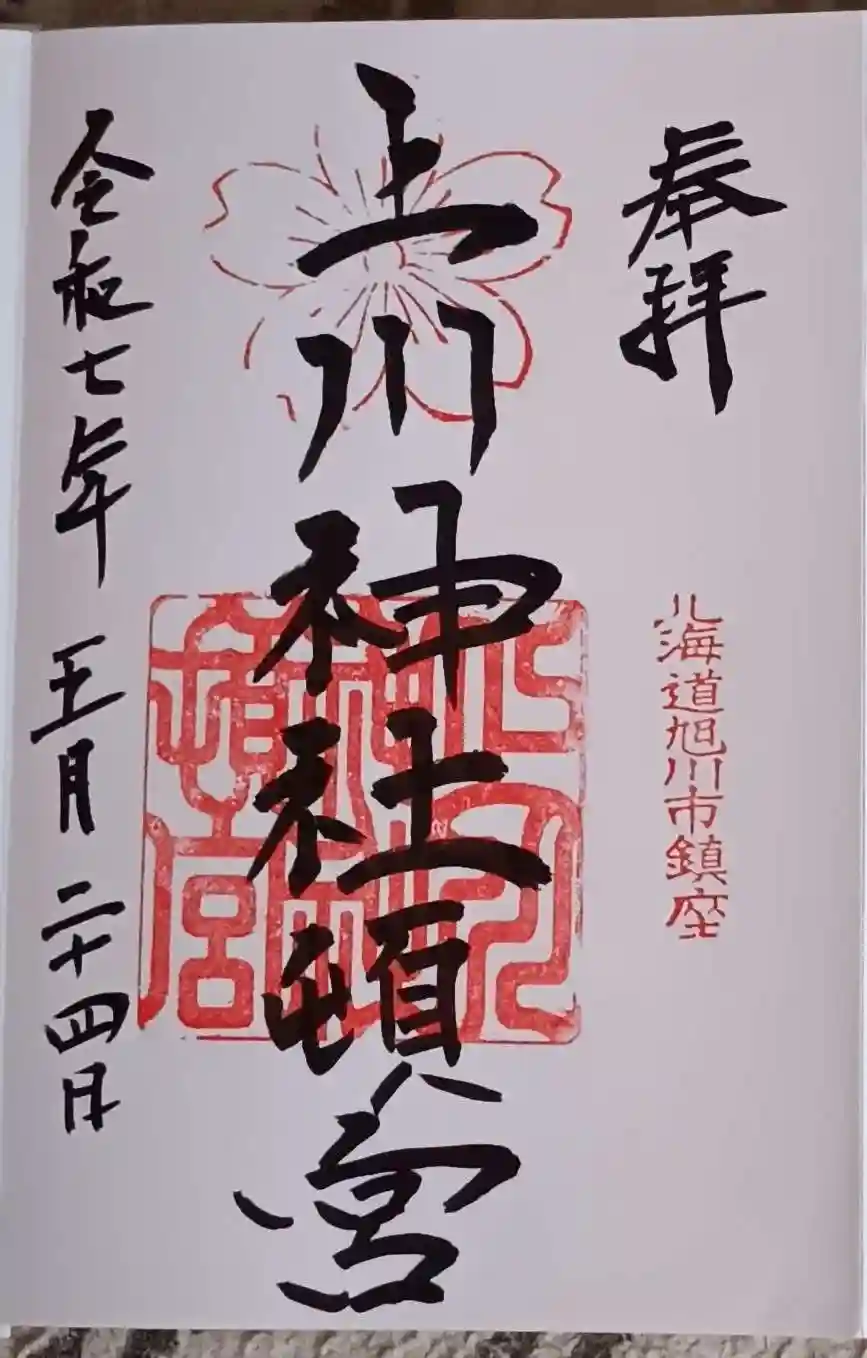 奉拝
北海道旭川市鎮座
上川神社頓宮
上川神社頓宮
令和七年 五月 二十四日